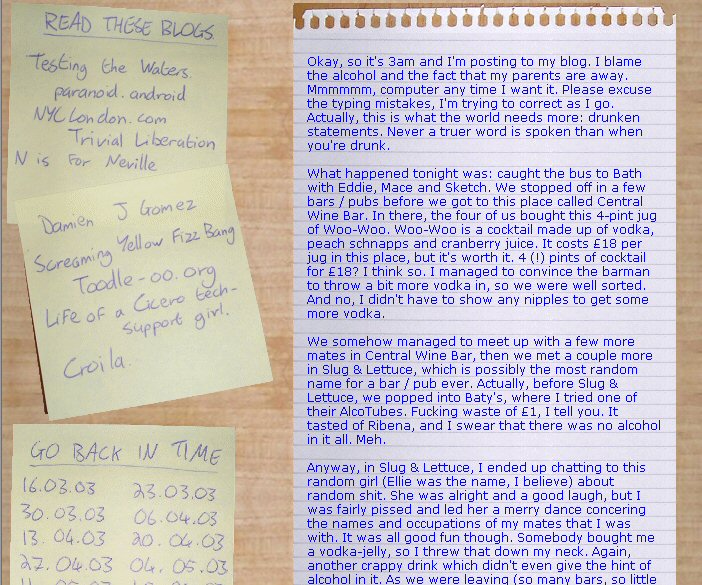 READ THESE BLOGS
Testing the Waters.
paranoid.android
NYCLondon.com
Trivial Liberation
N is for Neville
Damien J Gomez
Screaming Yellow Fizz Bang
Toodle-oo.org
Life of a Cicero tech-
support girl.
Croila
GO BACK IN TIME
16.03.03 23.03.03
30.03.03 06.04.03
13.04.03 20.04.03
27.04.03 04.05.03
Okay, so it's 3am and I'm posting to my blog. I blame
the alcohol and the fact that my parents are away.
Mmmmmm, computer any time I want it. Please excuse
the typing mistakes, I'm trying to correct as I go.
Actually, this is what the world needs more: drunken
statements. Never a truer word is spoken than when
you're drunk.
What happened tonight was: caught the bus to Bath
with Eddie, Mace and Sketch. We stopped off in a few
bars / pubs before we got to this place called Central
Wine Bar. In there, the four of us bought this 4-pint jug
of Woo-Woo. Woo-Woo is a cocktail made up of vodka,
peach schnapps and cranberry juice. It costs £18 per
jug in this place, but it's worth it. 4 (!) pints of cocktail
for £18? I think so. I managed to convince the barman
to throw a bit more vodka in, so we were well sorted.
And no, I didn't have to show any nipples to get some
more vodka.
We somehow managed to meet up with a few more
mates in Central Wine Bar, then we met a couple more
in Slug & Lettuce, which is possibly the most random
name for a bar / pub ever. Actually, before Slug &
Lettuce, we popped into Baty's, where I tried one of
their AlcoTubes. Fucking waste of £1, I tell you. It
tasted of Ribena, and I swear that there was no alcohol
in it all. Meh.
Anyway, in Slug & Lettuce, I ended up chatting to this
random girl (Ellie was the name, I believe) about
random shit. She was alright and a good laugh, but I
was fairly pissed and led her a merry dance concering
the names and occupations of my mates that I was
with. It was all good fun though. Somebody bought me
a vodka-jelly, so I threw that down my neck. Again,
another crappy drink which didn't even give the hint of
alcohol in it. As we were leaving (so many bars, so little